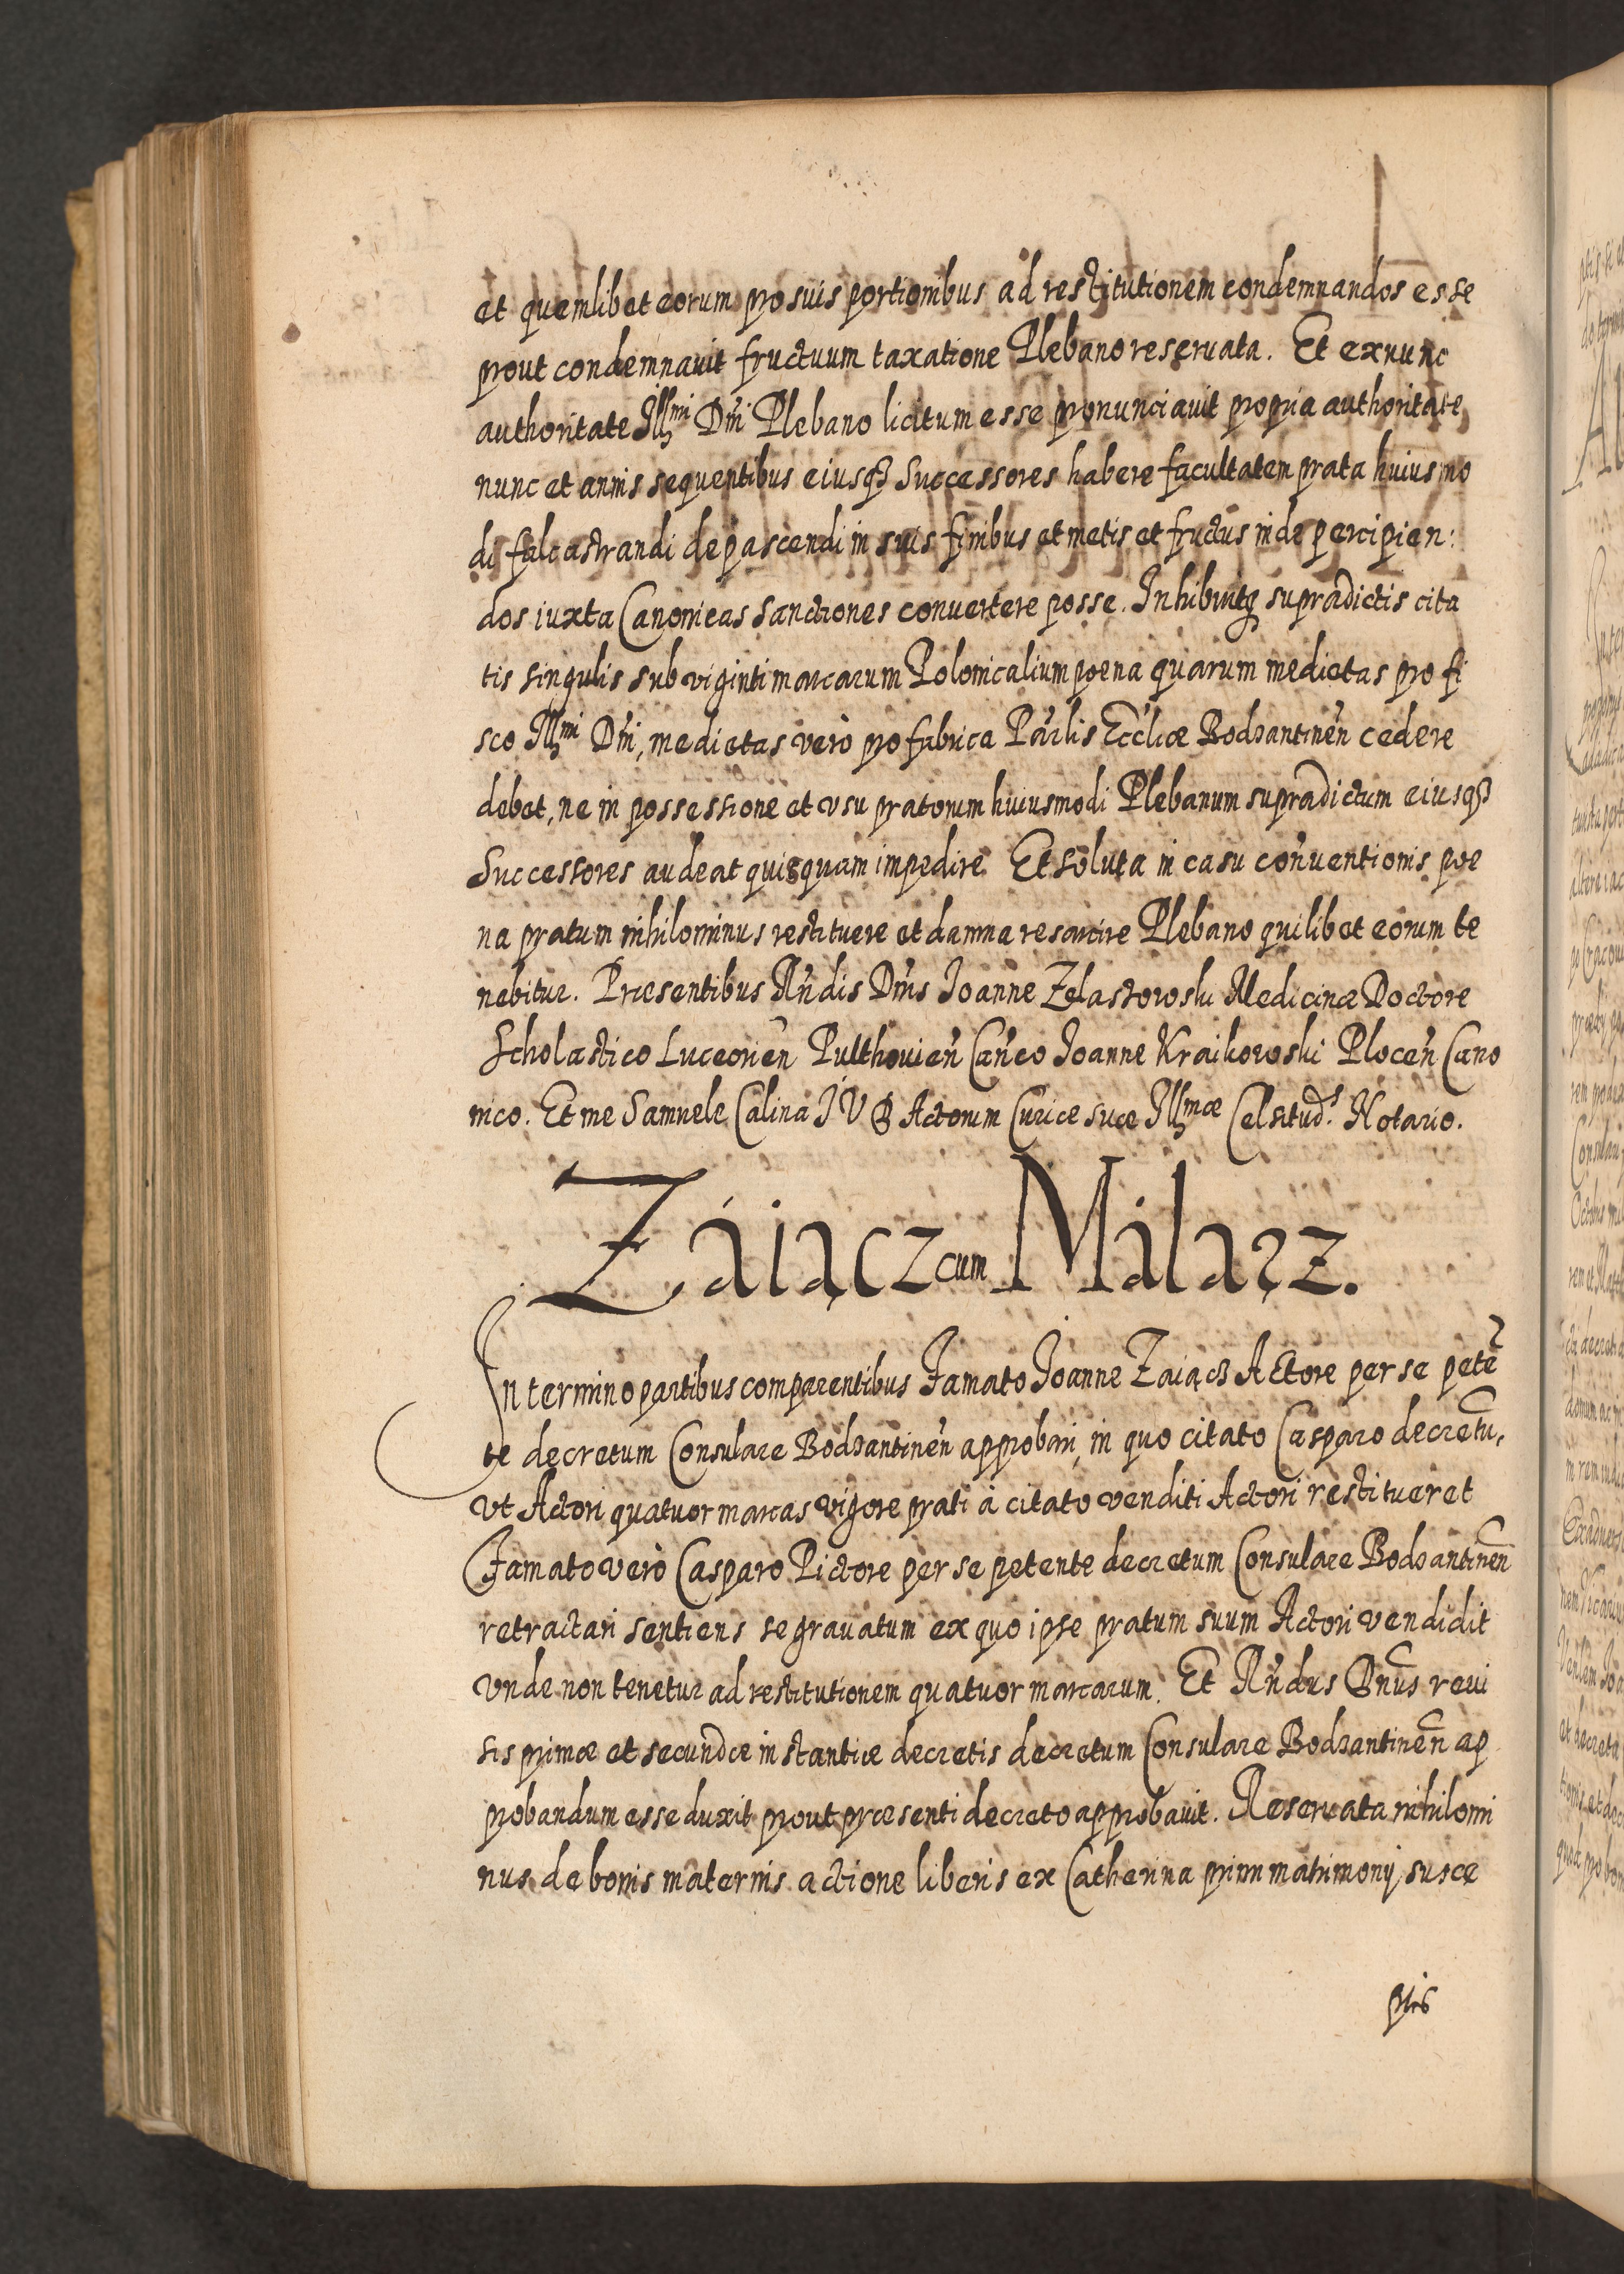 et quemlibet eorum pro suis portionibus ad restitutionem condemnandos esse
prout condemnauit fructuum taxatione Plebano reseruata. Et exnunc
authoritate Illmi Dni Plebano licitum esse pronunciauit propria authoritate
nunc et annis sequentibus eiusqȝ Successores habere facultatem prata huiusmo
di falcastrandi depascendi in suis finibus et metis et fructus inde percipien:
dos iuxta Canonicas Sanctiones conuertere posse. Inhibuitqȝ supradictis cita
tis singulis sub viginti marcarum Polonicalium poena quarum medietas pro fi
sco Illmi Dni, medietas verò pro fabrica Parlis Ecclicæ Bodzantinen̄ cedere
debet, ne in possessione et vsu pratorum huiusmodi Plebanum supradictum eiusqȝ
Successores audeat quisquam impedire. Et soluta in casu conuentionis poe
na pratum nihilominus restituere et damna resarcire Plebano quilibet eorum te
nebitur. Præsentibus Rn̄dis Dnis Joanne Zelastowski Medicinæ Doctore
Scholastico Luceorien̄ Pulthouien̄ Can̄co Joanne Kraikowski Plocen̄ Cano
nico. Et me Samuele Calina J V D Actorum Curiæ suæ Illmæ Celsitud: Notario.
Záiącz cum Málarz.
In termino partibus comparentibus Famato Joanne Zaiącz Actore per se petē
te decretum Consulare Bodzantinen̄ approbari, in quo citato Casparo decretū,
vt Actori quatuor marcas vigore prati à citato venditi Actori restitueret
Famato verò Casparo Pictore per se petente decretum Consulare Bodzantinen̄
retractari sentiens se grauatum ex quo ipse pratum suum Actori vendidit
vnde non tenetur ad restitutionem quatuor marcarum. Et Rn̄dus Dnūs reui
sis primæ et secundæ instantiæ decretis decretum Consulare Bodzantinen̄ ap
probandum esse duxit prout præsenti decreto approbauit. Reseruata nihilomi
nus de bonis maternis actione liberis ex Catherina primi matrimonij susce
ptis